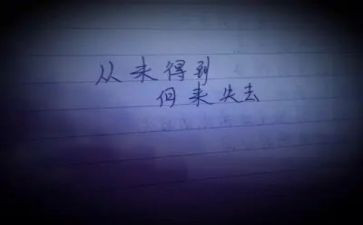 从来得到
何来失去